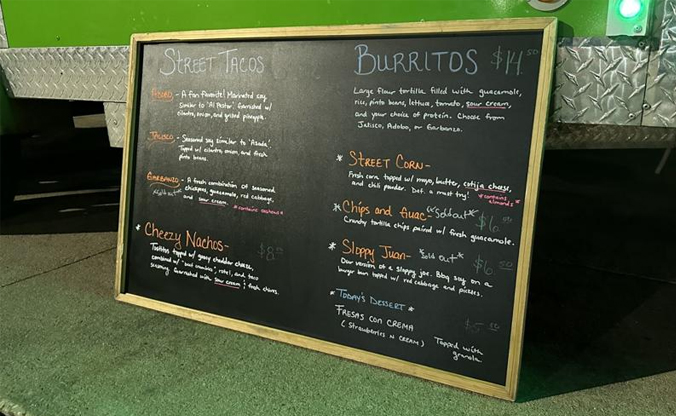 STREET TACOS
ADOBO - A fan favorite! Marinated soy,
similar to 'Al Pastor'. Garnished w/
cilantro, onion, and grilled pineapple.
JALISCO - Seasoned soy similar to 'Asada'.
Topped w/ cilantro, onion, and fresh
pinto beans.
GARBANZO - A fresh combination of seasoned
chickpeas, guacamole, red cabbage,
and sour cream. *contains cashews*
* CHEEZY NACHOS - $8
Tostitos topped w/ gooey cheddar cheese,
combined w/ rotel, and taco
seasoning. Garnished with sour cream & fresh chives.
BURRITOS $14.50
Large flour tortilla filled with guacamole,
rice, pinto beans, lettuce, tomato, sour cream,
and your choice of protein. Choose from
Jalisco, Adobo, or Garbanzo.
* STREET CORN -
Fresh corn topped w/ mayo, butter, cotija cheese,
and chili powder. Def. a must try! *contains
almonds*
* CHIPS AND GUAC - *Sold out* $6
Crunchy tortilla chips paired w/ fresh guacamole.
* SLOPPY JUAN - *Sold out* $6
Our version of a sloppy joe. Bbq soy on a
burger bun topped w/ red cabbage and pickles.
* TODAY'S DESSERT *
FRESAS CON CREMA $5
(STRAWBERRIES N CREAM) Topped with
granola